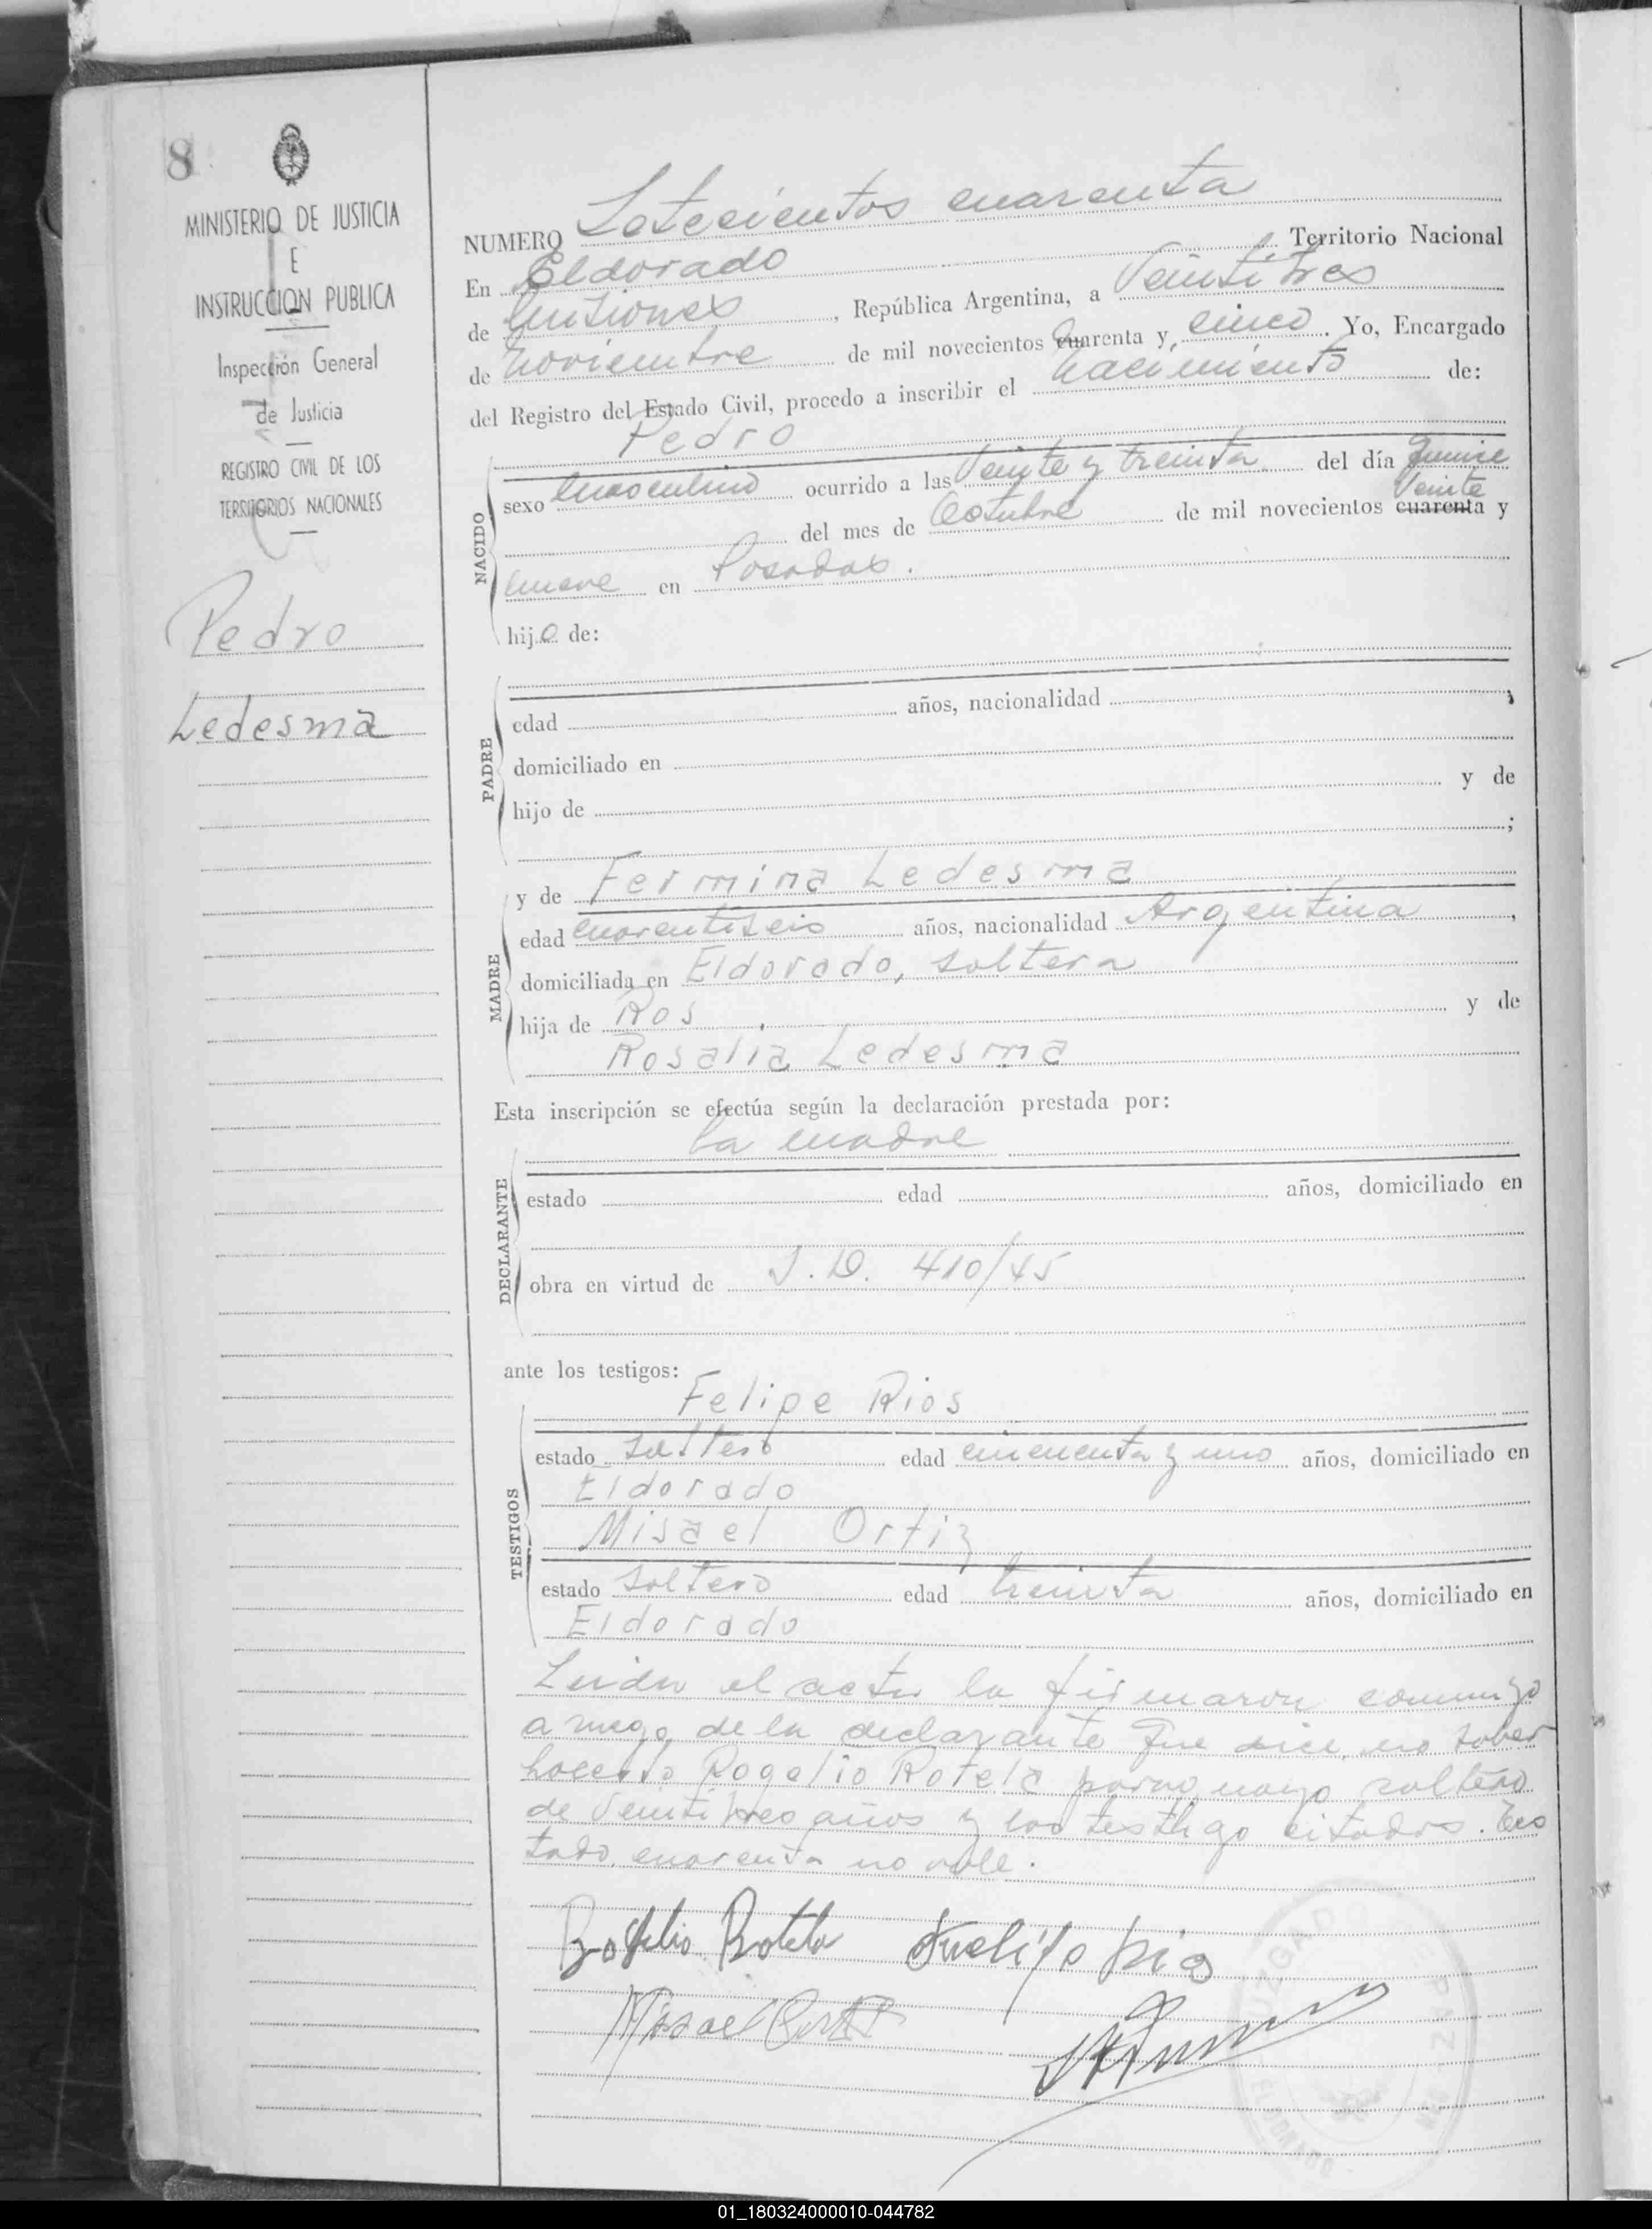 8
MINISTERIO DE JUSTICIA
E
INSTRUCCION PUBLICA
Inspección General
de Justicia
REGISTRO CIVIL DE LOS
TERRITORIOS NACIONALES
Pedro
Ledesma
NUMERO Setecientos cuarenta
En Eldorado Territorio Nacional
de Misiones, República Argentina, a Veintitres
de Noviembre de mil novecientos cuarenta y cinco. Yo, Encargado
del Registro del Estado Civil, procedo a inscribir el nacimiento de:
Pedro
NACIDO
sexo Masculino ocurrido a las Veinte y treinta del día quince
Veinte
del mes de Octubre de mil novecientos cuarenta y
nueve en Posadas.
hijo de:
PADRE
edad años, nacionalidad ,
domiciliado en
hijo de y de
;
y de Fermina Ledesma
MADRE
edad cuarentiseis años, nacionalidad Argentina,
domiciliada en Eldorado, soltera
hija de Ros y de
Rosalia Ledesma
Esta inscripción se efectúa según la declaración prestada por:
la madre
DECLARANTE
estado edad años, domiciliado en
obra en virtud de S.D. 410/45
ante los testigos:
Felipe Rios
TESTIGOS
estado soltero edad cincuenta y uno años, domiciliado en
Eldorado
Misael Ortiz
estado soltero edad treinta años, domiciliado en
Eldorado
Leida el acta la firmaron conmigo
a ruego de la declarante que dice no saber
hacerlo Rogelio Rotela paraguayo soltero
de Veintitres años y los testigo citados. Tes
tado cuarenta no vale.
Rogelio Rotela
Misael Ortiz
JUZGADO PAZ
ELDORADO
01_180324000010-044782